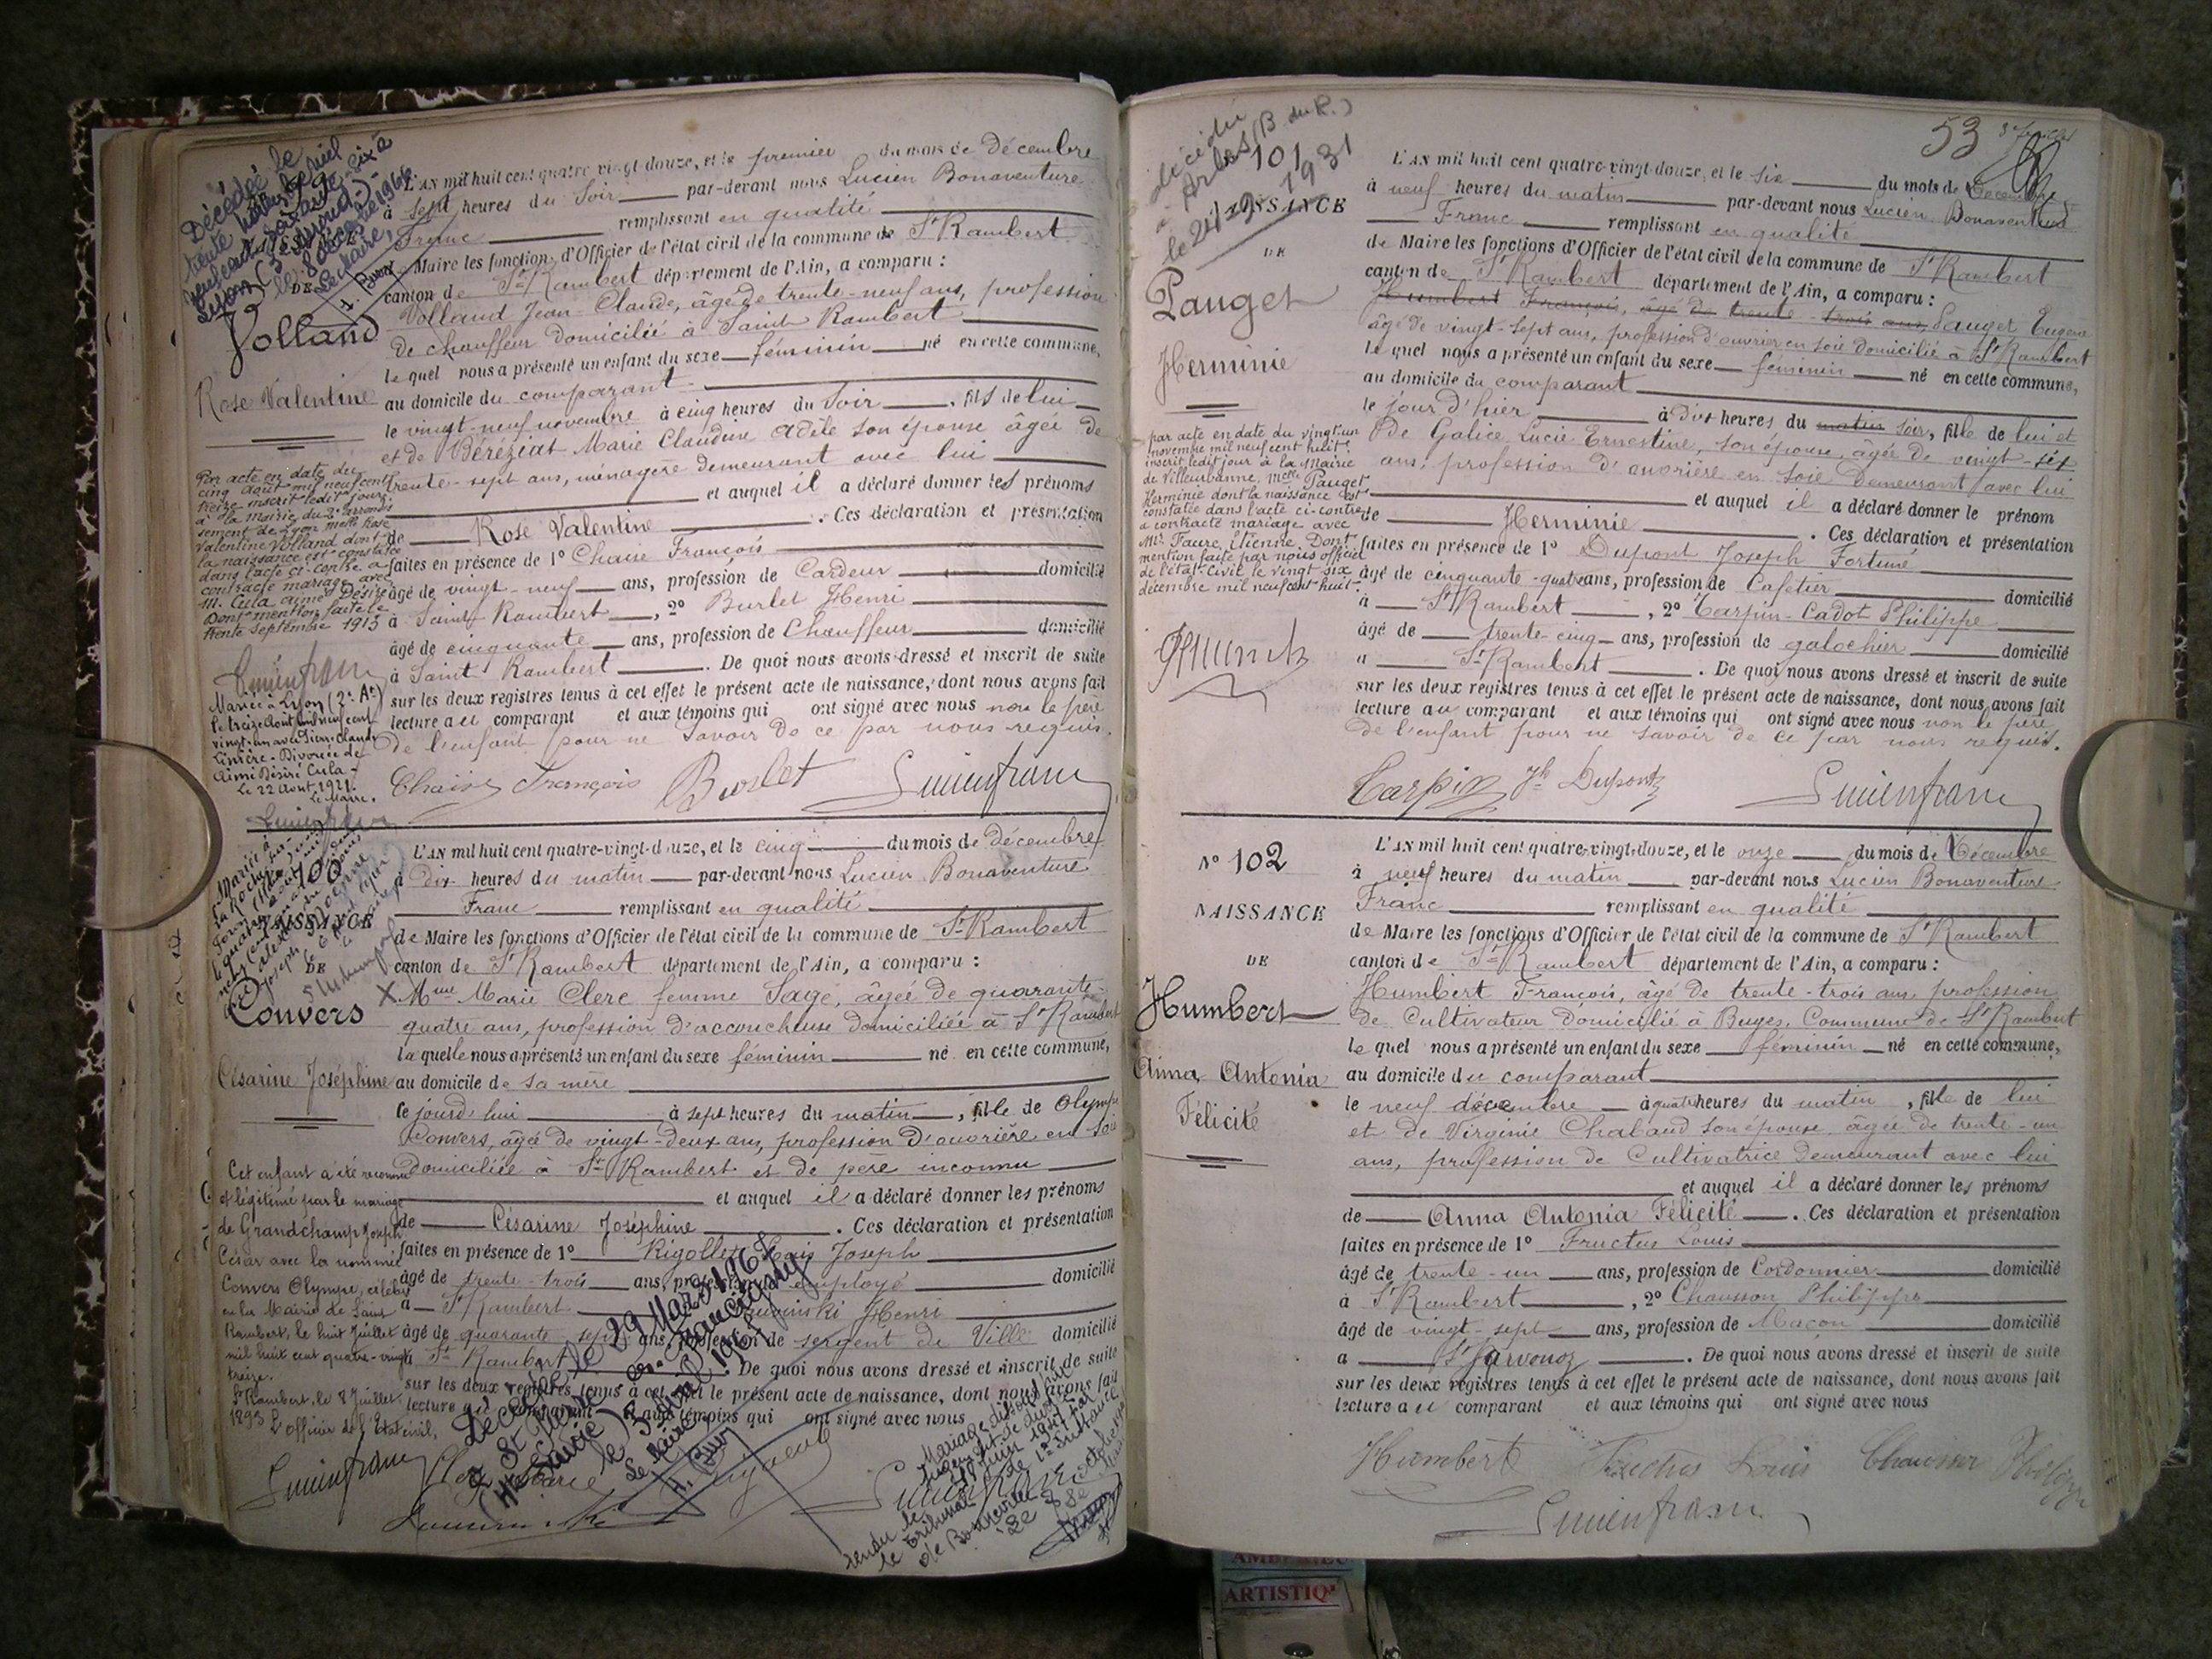 L'AN mil huit cent quatre vingt-douze, et le premier du mois de décembre
à sept heures du Soir par-devant nous Lucien Bonaventure
Franc remplissant en qualité
de Maire les fonctions d'Officier de l'état civil de la commune de St Rambert
canton de St Rambert département de l'Ain, a comparu :
Volland Jean-Claude, âgé de trente-neuf ans, profession
de chauffeur domicilié à Saint Rambert
le quel nous a présenté un enfant du sexe féminin né en cette commune,
au domicile du comparant
le vingt-neuf novembre à cinq heures du Soir, fils de lui
et de Béréziat Marie Claudine Adèle son épouse âgée de
trente-sept ans, ménagère demeurant avec lui
et auquel il a déclaré donner les prénoms
de Rose Valentine. Ces déclaration et présentation
faites en présence de 1° Chaise François
âgé de vingt-neuf ans, profession de Cardeur domicilié
à Saint Rambert, 2° Burlet Henri
âgé de cinquante ans, profession de Chauffeur domicilié
à Saint Rambert. De quoi nous avons dressé et inscrit de suite
sur les deux registres tenus à cet effet le présent acte de naissance, dont nous avons fait
lecture au comparant et aux témoins qui ont signé avec nous non le père
de l'enfant pour ne savoir de ce par nous requis.
Chaise François Burlet Lucienfranc
DE
Volland
Rose Valentine
Par acte en date du
cinq août mil neuf cent
treize inscrit ledit jour
à la Mairie du 2e arrondis
sement de Lyon melle Rose
Valentine Volland dont
la naissance est constatée
dans l'acte ci-contre a
contracté mariage avec
M. Cula aimé Désiré
Dont mention faite le
trente septembre 1913
Lucienfranc
Mariée à Lyon (2e At)
le treize Août mil neuf cent
vingt-un avec Pierre Claude
Linière - Divorcée de
Aimé Désiré Cula -
Le 22 Août 1921.
Le Maire.
L'AN mil huit cent quatre-vingt-douze, et le cinq du mois de décembre
à dix heures du matin par-devant nous Lucien Bonaventure
Franc remplissant en qualité
de Maire les fonctions d'Officier de l'état civil de la commune de St Rambert
canton de St Rambert département de l'Ain, a comparu :
X Mme Marie Clerc femme Sage, âgée de quarante-
quatre ans, profession d'accoucheuse domiciliée à St Rambert
la quelle nous a présenté un enfant du sexe féminin né en cette commune,
au domicile de sa mère
le jourd'hui à sept heures du matin, fille de Olympe
Convers, âgée de vingt-deux ans, profession d'ouvrière en soie
domiciliée à St Rambert et de père inconnu
et auquel il a déclaré donner les prénoms
de Césarine Joséphine. Ces déclaration et présentation
faites en présence de 1° Rigollet Joseph
âgé de trente-trois ans, profession employé domicilié
à St Rambert Henri
âgé de quarante sept ans, profession de sergent de Ville domicilié
à St Rambert. De quoi nous avons dressé et inscrit de suite
sur les deux registres tenus à cet effet le présent acte de naissance, dont nous avons fait
lecture au comparant et aux témoins qui ont signé avec nous
100
NAISSANCE
DE
Convers
Césarine Joséphine
Cet enfant a été reconnu
et légitimé par le mariage
de Grandchamp Joseph
César avec la nommée
Convers Olympe, célébré
en la Mairie de Saint
Rambert, le huit Juillet
mil huit cent quatre-vingt
treize.
St Rambert, le 8 Juillet
1893 L'officier de l'Etat civil,
Lucienfranc
53
L'AN mil huit cent quatre-vingt-douze, et le six du mois de Décembre
à neuf heures du matin par-devant nous Lucien Bonaventure
Franc remplissant en qualité
de Maire les fonctions d'Officier de l'état civil de la commune de St Rambert
canton de St Rambert département de l'Ain, a comparu :
Humbert François, âgé de trente-trois ans, Pauget Eugène
âgé de vingt-sept ans, profession d'ouvrier en soie domicilié à St Rambert
le quel nous a présenté un enfant du sexe féminin né en cette commune,
au domicile du comparant
le jour d'hier à dix heures du matin soir, fille de lui et
de Galice Lucie Ernestine, son épouse, âgée de vingt-six
ans, profession d'ouvrière en soie demeurant avec lui
et auquel il a déclaré donner le prénom
de Herminie. Ces déclaration et présentation
faites en présence de 1° Dupont Joseph Fortuné
âgé de cinquante-quatre ans, profession de Cafetier domicilié
à St Rambert, 2° Carpin-Cadot Philippe
âgé de trente-cinq ans, profession de galochier domicilié
à St Rambert. De quoi nous avons dressé et inscrit de suite
sur les deux registres tenus à cet effet le présent acte de naissance, dont nous avons fait
lecture au comparant et aux témoins qui ont signé avec nous non le père
de l'enfant pour ne savoir de ce par nous requis.
Carpin Jh Dupont Lucienfranc
décédée
à Arles (B. du R.)
le 24/12/1931
101
NAISSANCE
DE
Pauget
Herminie
par acte en date du vingt un
novembre mil neuf cent huit
inscrit ledit jour à la Mairie
de Villeurbanne, Melle Pauget
Herminie dont la naissance est
constatée dans l'acte ci-contre
a contracté mariage avec
Mr. Faure, Etienne. Dont
mention faite par nous officier
de l'état-civil le vingt six
décembre mil neuf cent huit.
L'AN mil huit cent quatre-vingt-douze, et le onze du mois de Décembre
à neuf heures du matin par-devant nous Lucien Bonaventure
Franc remplissant en qualité
de Maire les fonctions d'Officier de l'état civil de la commune de St Rambert
canton de St Rambert département de l'Ain, a comparu :
Humbert François, âgé de trente-trois ans, profession
de Cultivateur domicilié à Buges, Commune de St Rambert
le quel nous a présenté un enfant du sexe féminin né en cette commune,
au domicile du comparant
le neuf décembre à quatre heures du matin, fille de lui
et de Virginie Chaband son épouse, âgée de trente-un
ans, profession de Cultivatrice demeurant avec lui
et auquel il a déclaré donner les prénoms
de Anna Antonia Félicité. Ces déclaration et présentation
faites en présence de 1° Fructus Louis
âgé de trente-un ans, profession de Cordonnier domicilié
à St Rambert, 2° Chausson Philippe
âgé de vingt-sept ans, profession de Maçon domicilié
à. De quoi nous avons dressé et inscrit de suite
sur les deux registres tenus à cet effet le présent acte de naissance, dont nous avons fait
lecture au comparant et aux témoins qui ont signé avec nous
Humbert Fructus Louis Chausson Philippe
Lucienfranc
N° 102
NAISSANCE
DE
Humbert
Anna Antonia
Félicité
ARTISTIQ